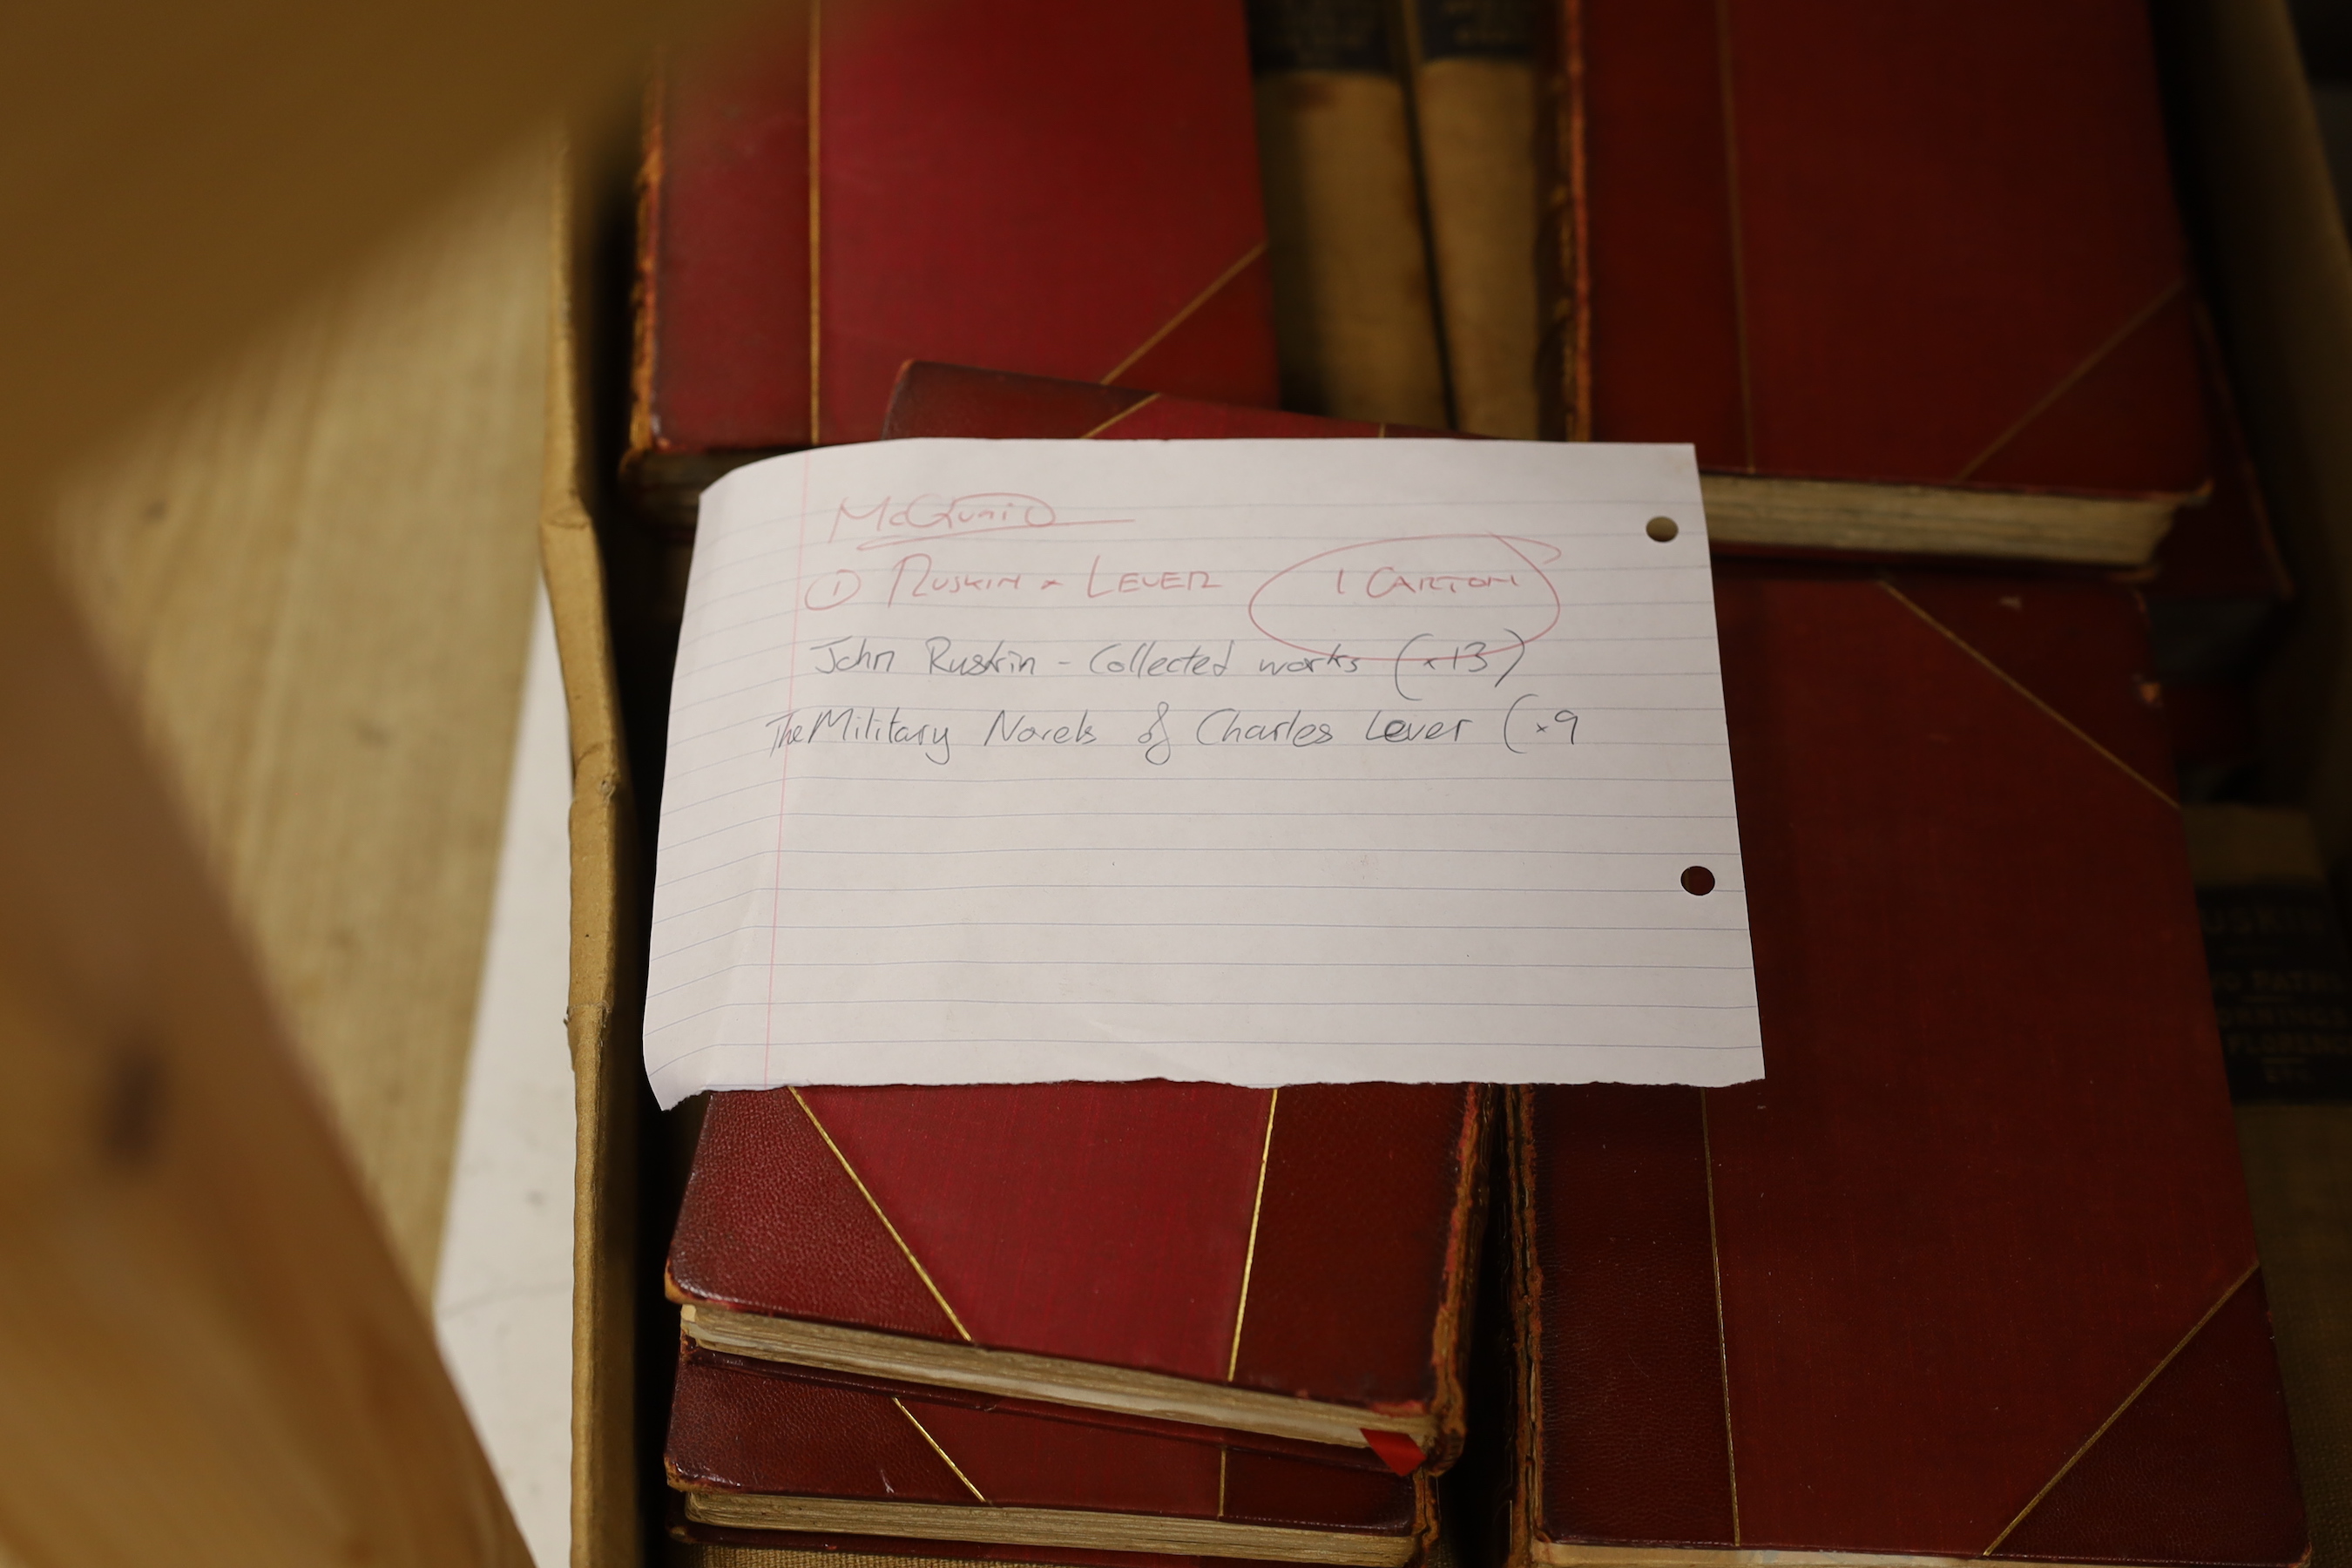 McQuaid
① Ruskin & Lever 1 Carton
John Ruskin - Collected works (x13)
The Military Novels of Charles Lever (x9